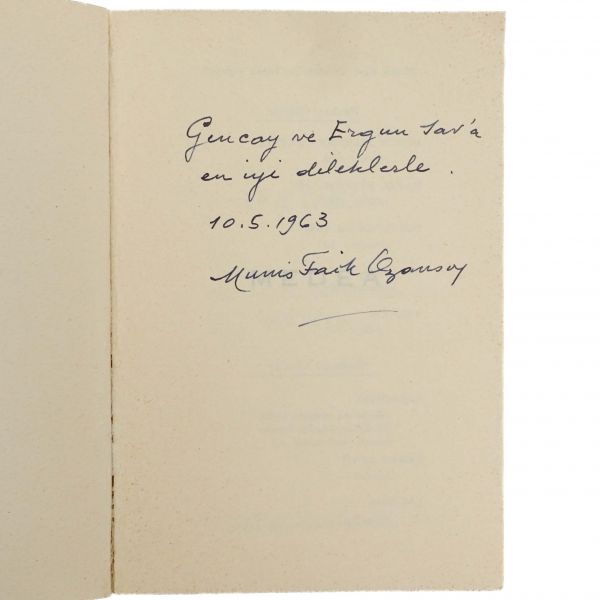 Gencay ve Ergun Sav'a
en iyi dileklerle.
10.5.1963
Munis Faik Ozansoy
MEDEA